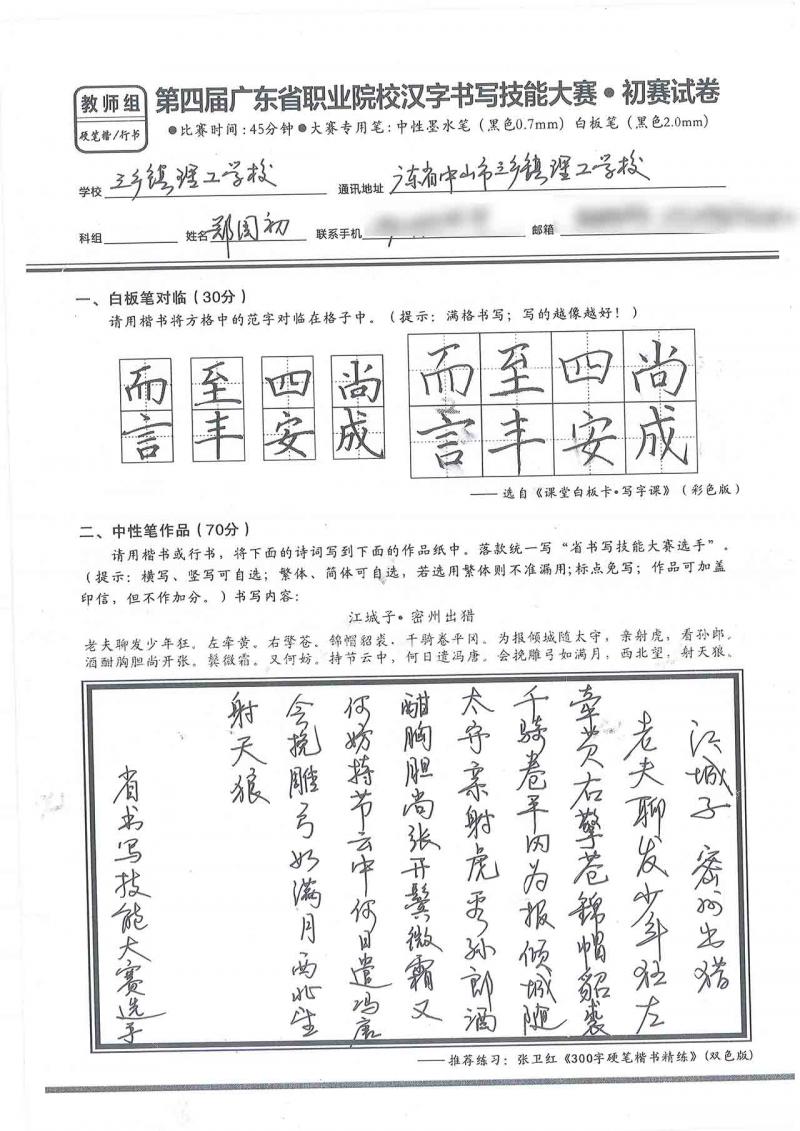 教师组
硬笔楷/行书
第四届广东省职业院校汉字书写技能大赛•初赛试卷
●比赛时间:45分钟●大赛专用笔:中性墨水笔(黑色0.7mm) 白板笔(黑色2.0mm)
学校 三乡镇理工学校 通讯地址 广东省中山市三乡镇理工学校
科组 姓名 郑国初 联系手机 邮箱
一、白板笔对临(30分)
请用楷书将方格中的范字对临在格子中。(提示:满格书写;写的越像越好!)
而 至 四 尚 而 至 四 尚
言 丰 安 成 言 丰 安 成
——选自《课堂白板卡•写字课》(彩色版)
二、中性笔作品(70分)
请用楷书或行书,将下面的诗词写到下面的作品纸中。落款统一写“省书写技能大赛选手”。
(提示:横写、竖写可自选;繁体、简体可自选,若选用繁体则不准漏用;标点免写;作品可加盖
印信,但不作加分。)书写内容:
江城子·密州出猎
老夫聊发少年狂。左牵黄。右擎苍。锦帽貂裘,千骑卷平冈。为报倾城随太守,亲射虎,看孙郎。
酒酣胸胆尚开张。鬓微霜。又何妨。持节云中,何日遣冯唐。会挽雕弓如满月,西北望,射天狼。
江城子 密州出猎
老夫聊发少年狂左
牵黄右擎苍锦帽貂裘
千骑卷平冈为报倾城随
太守亲射虎看孙郎酒
酣胸胆尚张开鬓微霜又
何妨持节云中何日遣冯唐
会挽雕弓如满月西北望
射天狼
省书写技能大赛选手
——推荐练习:张卫红《300字硬笔楷书精练》(双色版)